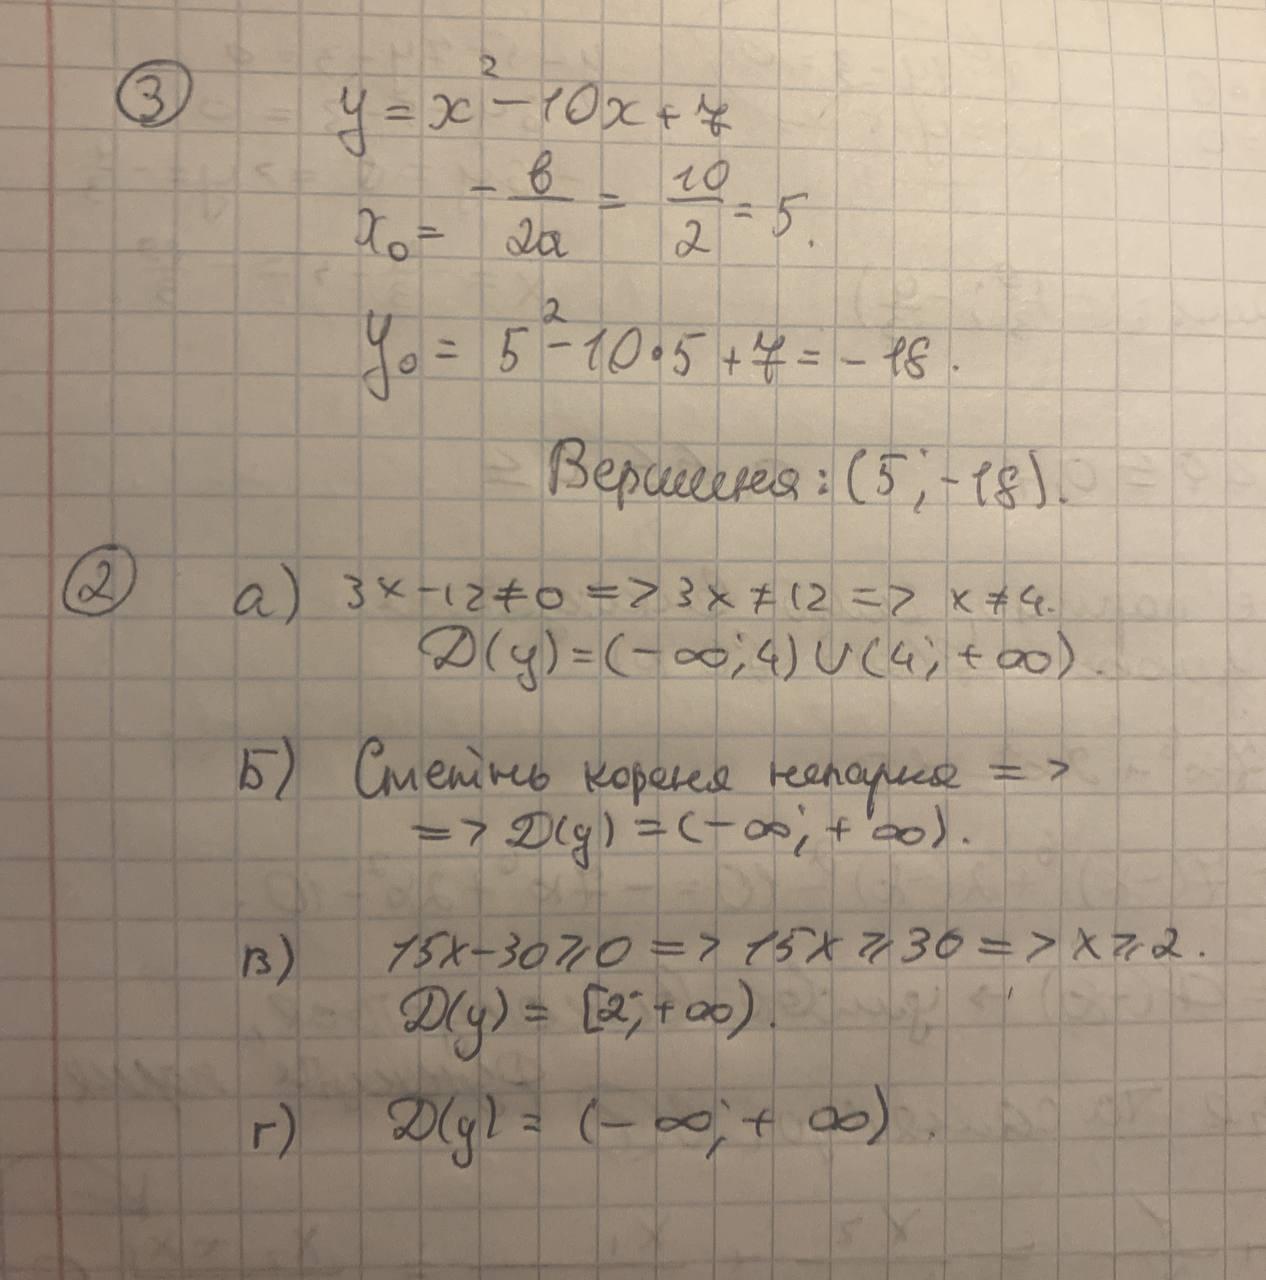 ③ y = x² - 10x + 7
x₀ = - в/2a = 10/2 = 5.
y₀ = 5² - 10·5 + 7 = - 18.
Вершина: (5; -18).
② а) 3x - 12 ≠ 0 => 3x ≠ 12 => x ≠ 4.
D(y) = (-∞; 4) ∪ (4; +∞).
Б) Степінь кореня непарна =>
=> D(y) = (-∞; +∞).
в) 15x - 30 ⩾ 0 => 15x ⩾ 30 => x ⩾ 2.
D(y) = [2; +∞).
г) D(y) = (-∞; +∞).